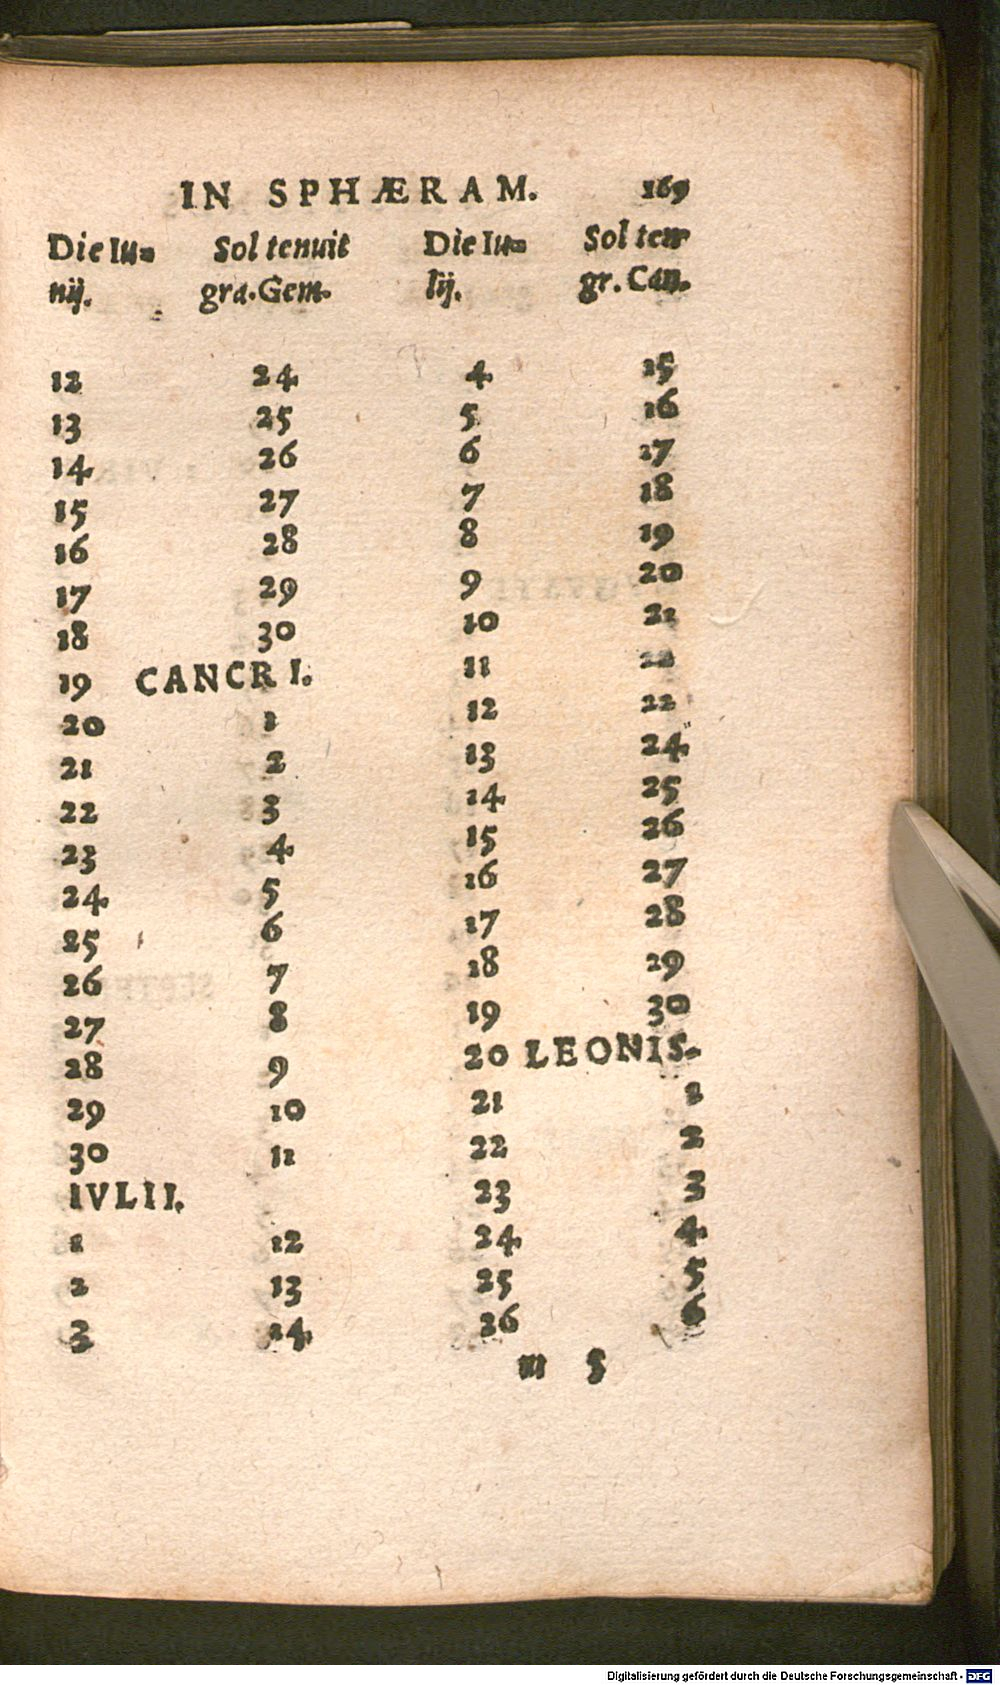 IN SPHÆRAM. 169
Die Iu= Sol tenuit Die Iu= Sol ten
nij. gra. Gem. lij. gr. Can.
12 24 4 15
13 25 5 16
14 26 6 17
15 27 7 18
16 28 8 19
17 29 9 20
18 30 10 21
19 CANCRI. 11 22
20 1 12 22
21 2 13 24
22 3 14 25
23 4 15 26
24 5 16 27
25 6 17 28
26 7 18 29
27 8 19 30
28 9 20 LEONIS.
29 10 21 1
30 11 22 2
IVLII. 23 3
1 12 24 4
2 13 25 5
3 14 26 6
m 5
Digitalisierung gefördert durch die Deutsche Forschungsgemeinschaft - DFG